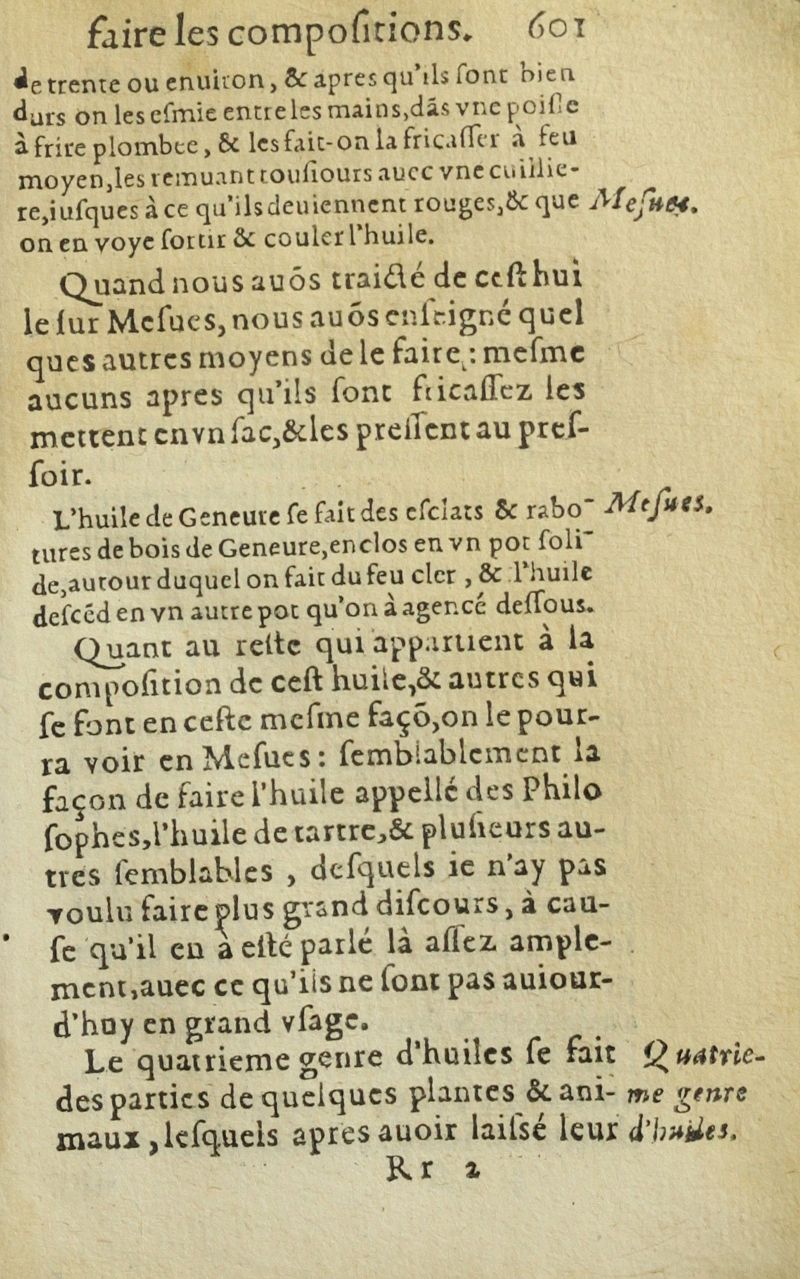 faire les compoſitions. 601
de trente ou enuiron, & apres qu'ils ſont bien
durs on les eſmie entre les mains, dās vne poiſle
à frire plombee, & les fait-on la fricaſſer à feu
moyen, les remuant touſiours auec vne cuillie-
re, iuſques à ce qu'ils deuiennent rouges, & que Meſues.
on en voye ſortir & couler l'huile.
Quand nous auōs traicté de ceſt hui
le ſur Meſues, nous auōs enſeigné quel
ques autres moyens de le faire: meſme
aucuns apres qu'ils ſont fricaſſez les
mettent en vn ſac, & les preſſent au preſ-
ſoir.
L'huile de Geneure ſe fait des eſclats & rabo- Meſues.
tures de bois de Geneure, enclos en vn pot ſoli-
de, autour duquel on fait du feu cler, & l'huile
deſcēd en vn autre pot qu'on à agencé deſſous.
Quant au reſte qui appartient à la
compoſition de ceſt huile, & autres qui
ſe font en ceſte meſme façō, on le pour-
ra voir en Meſues: ſemblablement la
façon de faire l'huile appellé des Philo
ſophes, l'huile de tartre, & pluſieurs au-
tres ſemblables, deſquels ie n'ay pas
voulu faire plus grand diſcours, à cau-
ſe qu'il en à eſté parlé là aſſez ample-
ment, auec ce qu'ils ne ſont pas auiour-
d'huy en grand vſage.
Le quatrieme genre d'huiles ſe fait Quatrie-
des parties de quelques plantes & ani- me genre
maux, leſquels apres auoir laiſsé leur d'huiles.
Rr 2